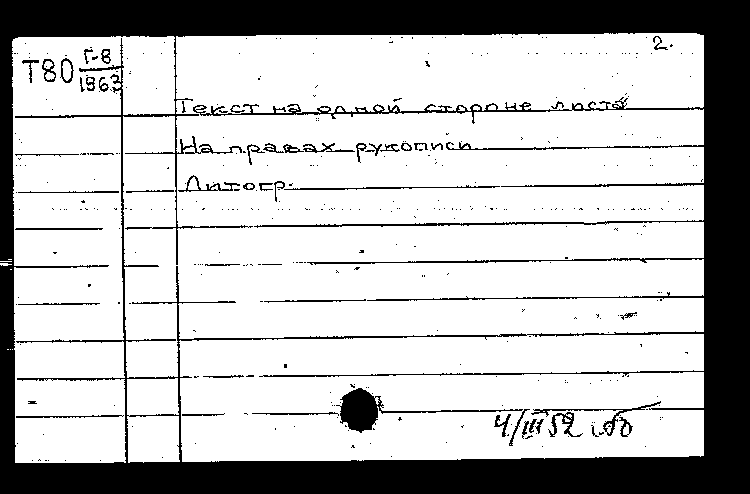 2.
Т80 Г-8/1863
Текст на одной стороне листа
На правах рукописи
Литогр.
4/III 52